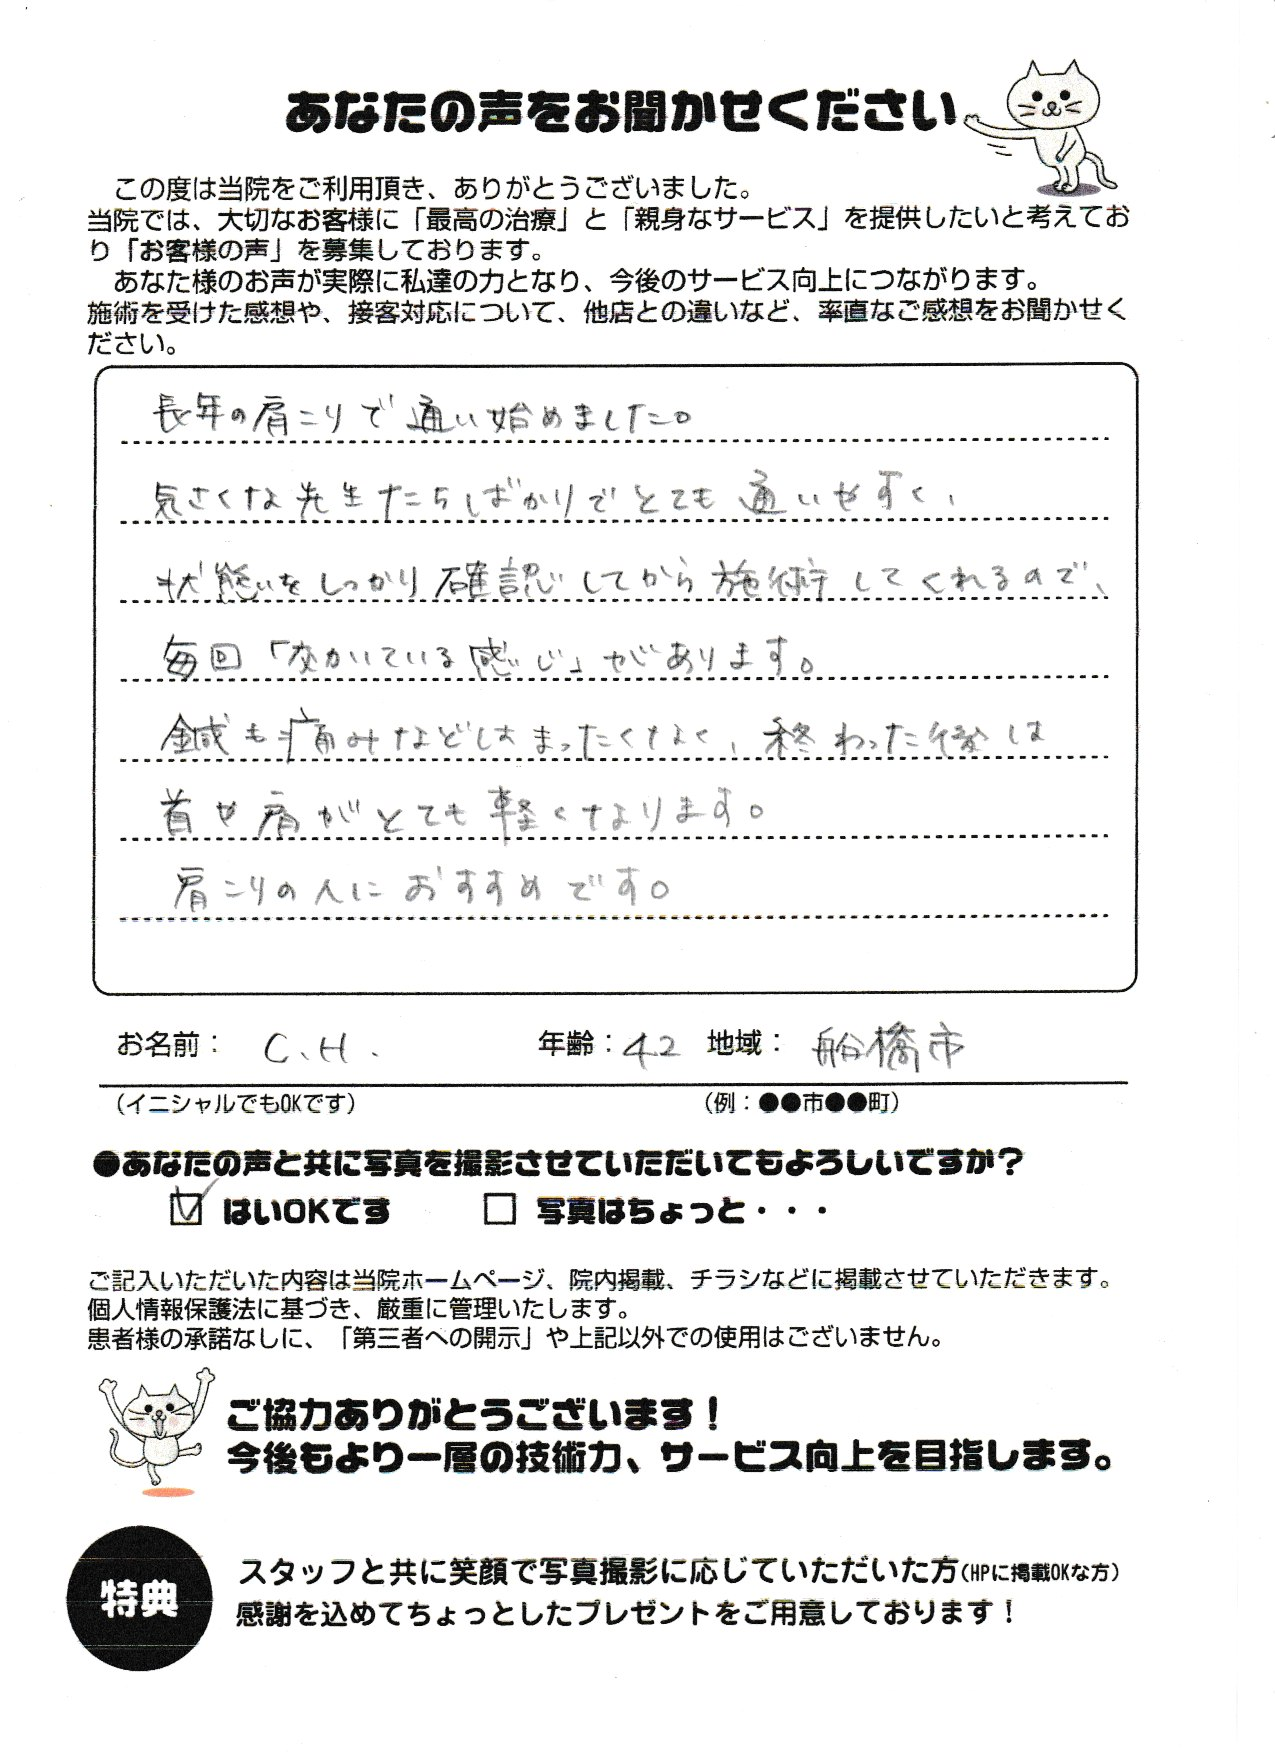 あなたの声をお聞かせください
この度は当院をご利用頂き、ありがとうございました。
当院では、大切なお客様に「最高の治療」と「親身なサービス」を提供したいと考えてお
り「お客様の声」を募集しております。
あなた様のお声が実際に私達の力となり、今後のサービス向上につながります。
施術を受けた感想や、接客対応について、他店との違いなど、率直なご感想をお聞かせく
ださい。
長年の肩こりで通い始めました。
気さくな先生たちばかりでとても通いやすく、
状態をしっかり確認してから施術してくれるので、
毎回「効いている感じ」があります。
鍼も痛みなどはまったくなく、終わった後は
首や肩がとても軽くなります。
肩こりの人におすすめです。
お名前： C.H. 年齢：42 地域： 船橋市
（イニシャルでもOKです） （例：●●市●●町）
●あなたの声と共に写真を撮影させていただいてもよろしいですか？
☑ はいOKです □ 写真はちょっと・・・
ご記入いただいた内容は当院ホームページ、院内掲載、チラシなどに掲載させていただきます。
個人情報保護法に基づき、厳重に管理いたします。
患者様の承諾なしに、「第三者への開示」や上記以外での使用はございません。
ご協力ありがとうございます！
今後もより一層の技術力、サービス向上を目指します。
特典
スタッフと共に笑顔で写真撮影に応じていただいた方（HPに掲載OKな方）
感謝を込めてちょっとしたプレゼントをご用意しております！